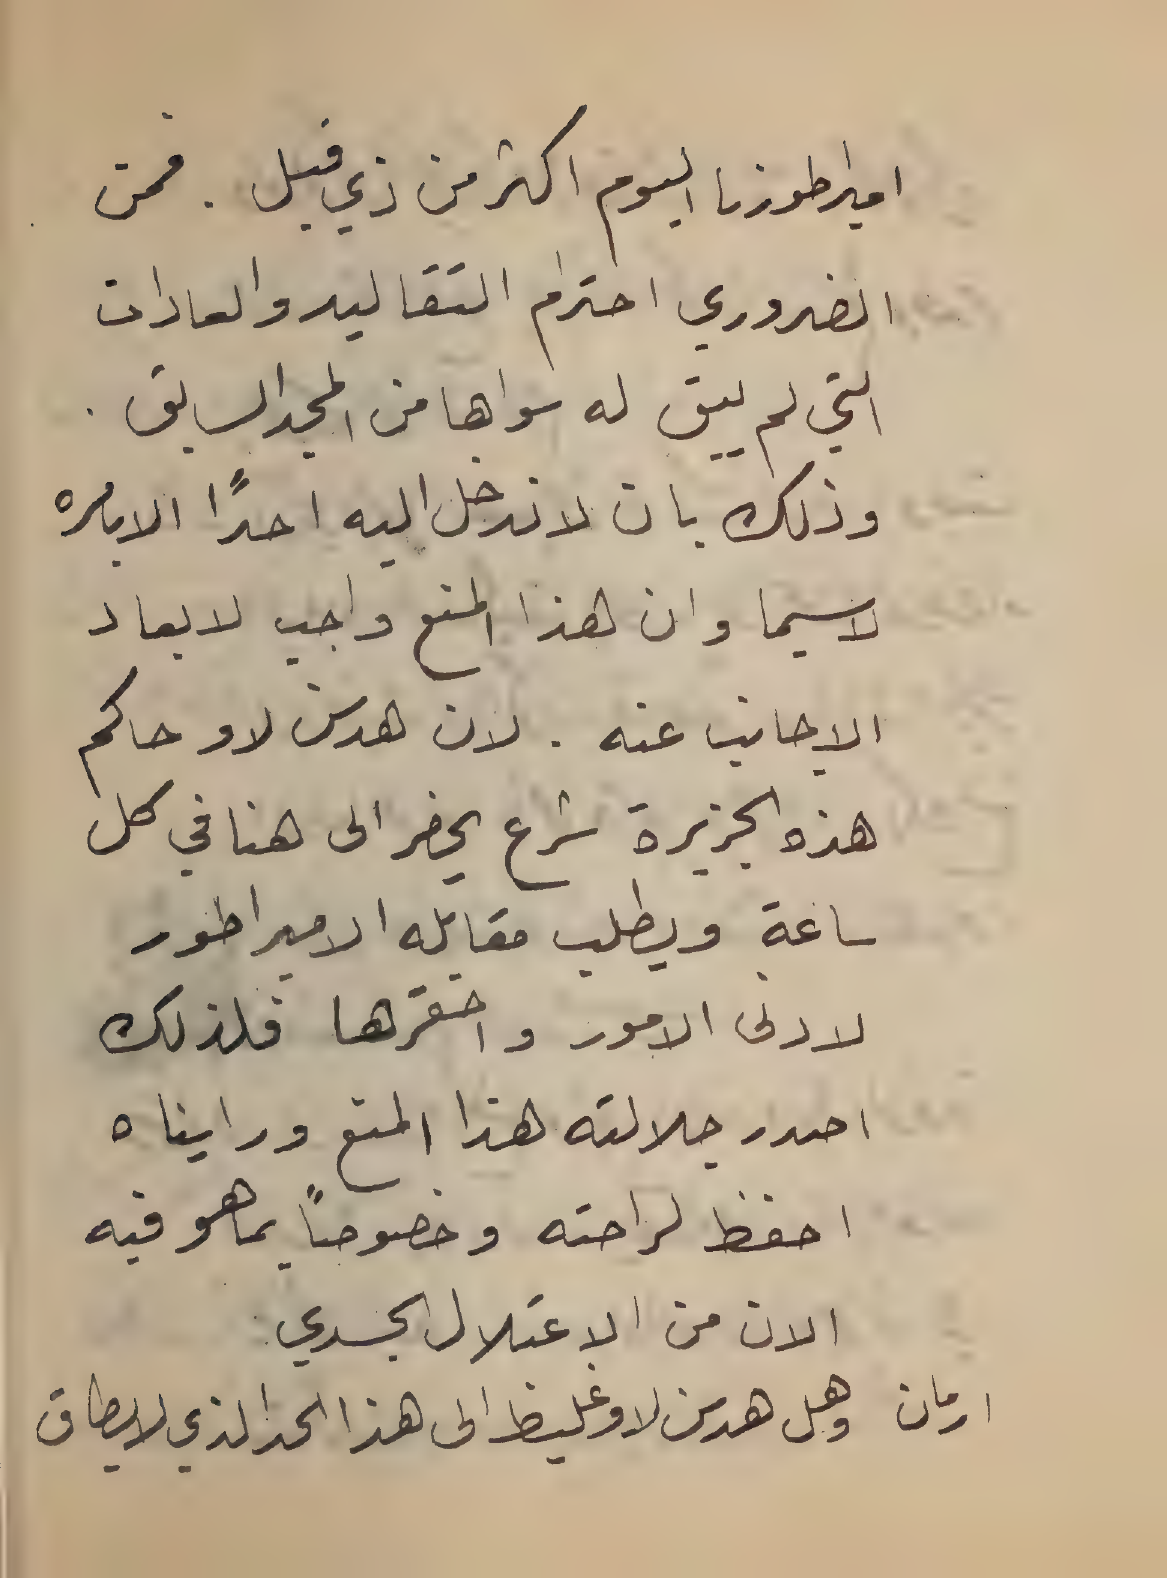 امبراطورنا اليوم اكثر من ذي قبل . فمن
الضروري احترام التقاليد والعادات
التي لم يبق له سواها من المجد السابق .
وذلك بان لا ندخل اليه احدًا الا بامره
لاسيما وان هذا المنع واجب لابعاد
الاجانب عنه . لان هدسن لاو حاكم
هذه الجزيرة شرع يحضر الى هنا في كل
ساعة ويطلب مقابله الامبراطور
لادنى الامور واحقرها فلذلك
اصدر جلالته هذا المنع ورايناه
احفظ لراحته وخصوصاً بما هو فيه
الان من الاعتلال الجسدي .
ارمان وهل هدسن لاو غليظ الى هذا الحد الذي لا يطاق